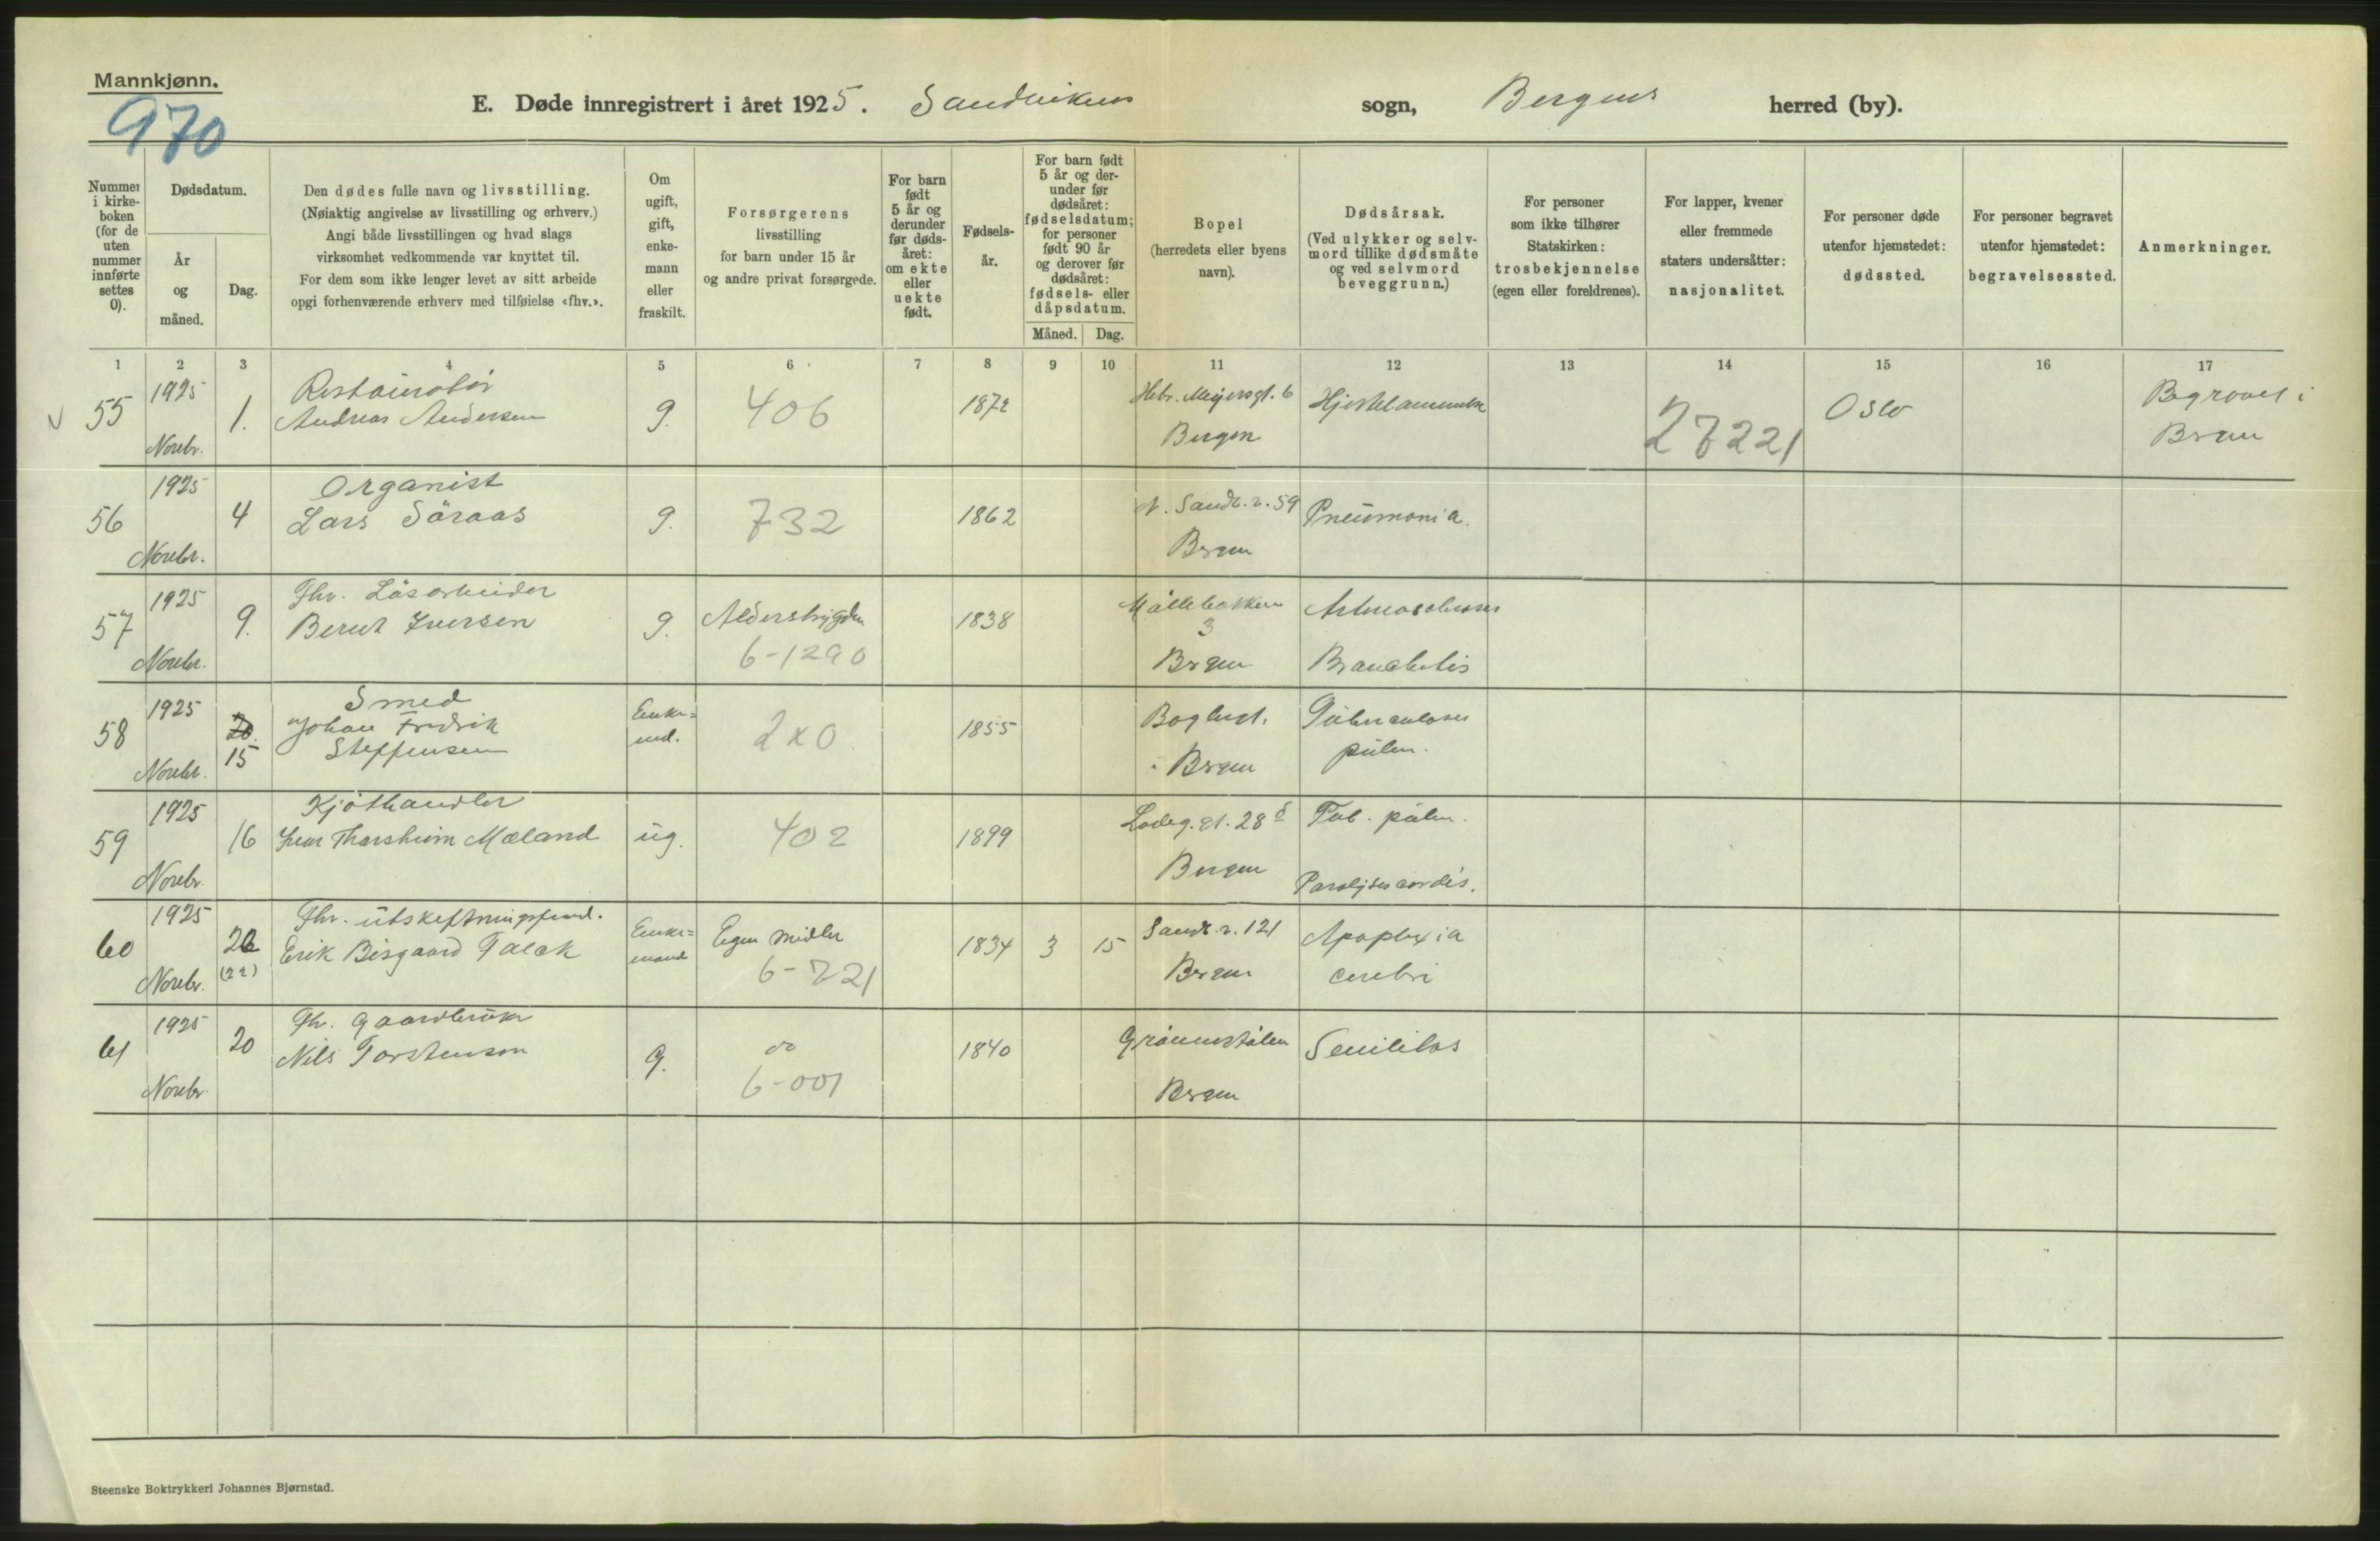 Mannkjønn.
970
E. Døde innregistrert i året 1925. Sandvikens sogn, Bergens herred (by).
Nummer i kirke-boken (for de uten nummer innførte settes 0).
Dødsdatum.
År og måned.
Dag.
Den dødes fulle navn og livsstilling.
(Nøiaktig angivelse av livsstilling og erhverv.)
Angi både livsstillingen og hvad slags
virksomhet vedkommende var knyttet til.
For dem som ikke lenger levet av sitt arbeide
opgi forhenværende erhverv med tilføielse «fhv.».
Om ugift, gift, enke-mann eller fraskilt.
Forsørgerens
livsstilling
for barn under 15 år
og andre privat forsørgede.
For barn født 5 år og derunder før døds-året: om ekte eller uekte født.
Fødsels-år.
For barn født 5 år og der-under før dødsåret: fødselsdatum; for personer født 90 år og derover før dødsåret: fødsels- eller dåpsdatum.
Måned. Dag.
Bopel
(herredets eller byens navn).
Dødsårsak.
(Ved ulykker og selv-mord tillike dødsmåte og ved selvmord beveggrunn.)
For personer som ikke tilhører Statskirken: trosbekjennelse (egen eller foreldrenes).
For lapper, kvener eller fremmede staters undersåtter: nasjonalitet.
For personer døde utenfor hjemstedet: dødssted.
For personer begravet utenfor hjemstedet: begravelsessted.
Anmerkninger.
1 2 3 4 5 6 7 8 9 10 11 12 13 14 15 16 17
55 1925 Novbr. 1. Restauratør
Andreas Andersen g. 406 1872 Hbr. Meyersgt. 6
Bergen 27221 Oslo Begravet i
Bergen
56 1925 Novbr. 4 Organist
Lars Söraas g. 732 1862 N. Sandv. v. 59
Bergen Pneumonia.
57 1925 Novbr. 9. Fhv. Løsarbeider
Bernt Iversen g. Alderstrygden
6-1290 1838 Møllebakken
3
Bergen Bronchitis
58 1925 Novbr. 20. 15 Smed
Johan Fredrik
Steffensen Enke=
md. 2x0 1855
Bergen Tuberculosis
pulm.
59 1925 Novbr. 16 Kjøthandler
Ivar Thorsheim Mæland ug. 402 1899 Lodeg. gt. 28
Bergen Tub. pulm.
Paralysis cordis.
60 1925 Novbr. (22) Fhv. utskiftningsform.
Erik Bisgaard Falck Enke=
mand Egne midler
6-721 1834 3 15 Sandv. v. 121
Bergen Apoplexia
cerebri
61 1925 Novbr. 20 Fh. gaardbruker
Nils Torstenson g. do
6-001 1840
Bergen Senilitas
Steenske Boktrykkeri Johannes Bjørnstad.